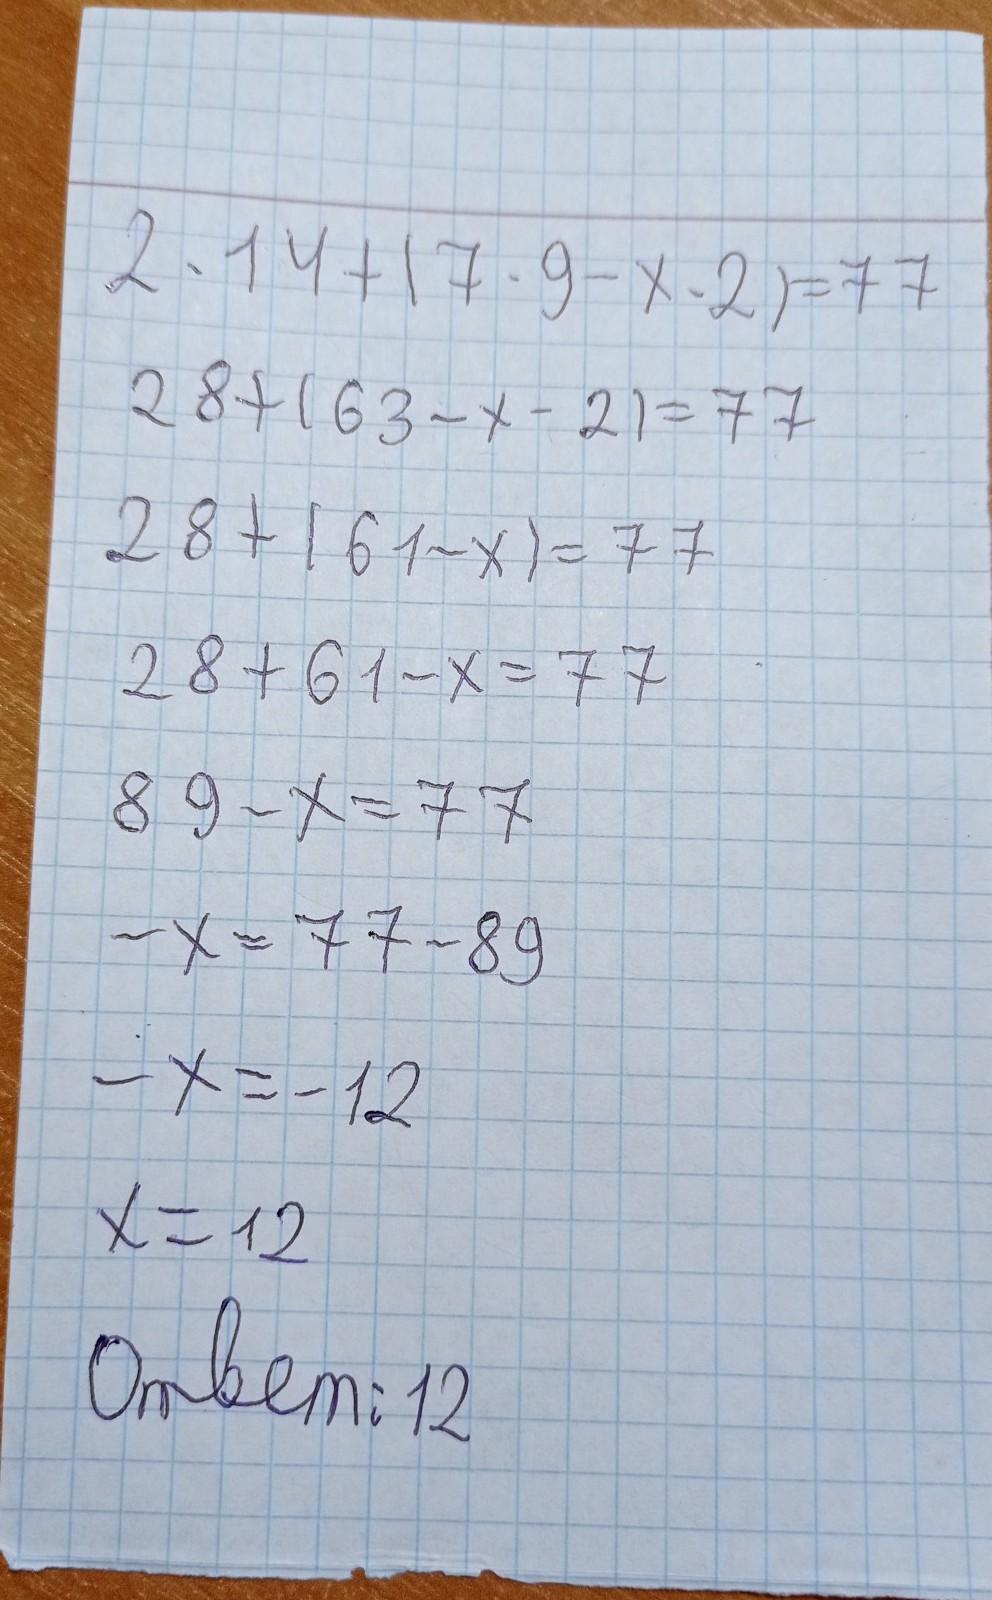 2·14+(7·9-x·2)=77
28+(63-x-2)=77
28+(61-x)=77
28+61-x=77
89-x=77
-x=77-89
-x=-12
x=12
Ответ: 12